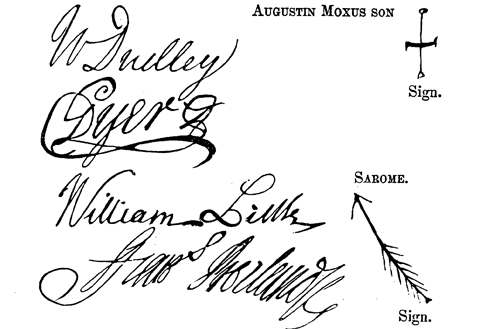 W Dudley
AUGUSTIN MOXUS SON
Sign.
Dyer
William Little
SAROME.
Sign.